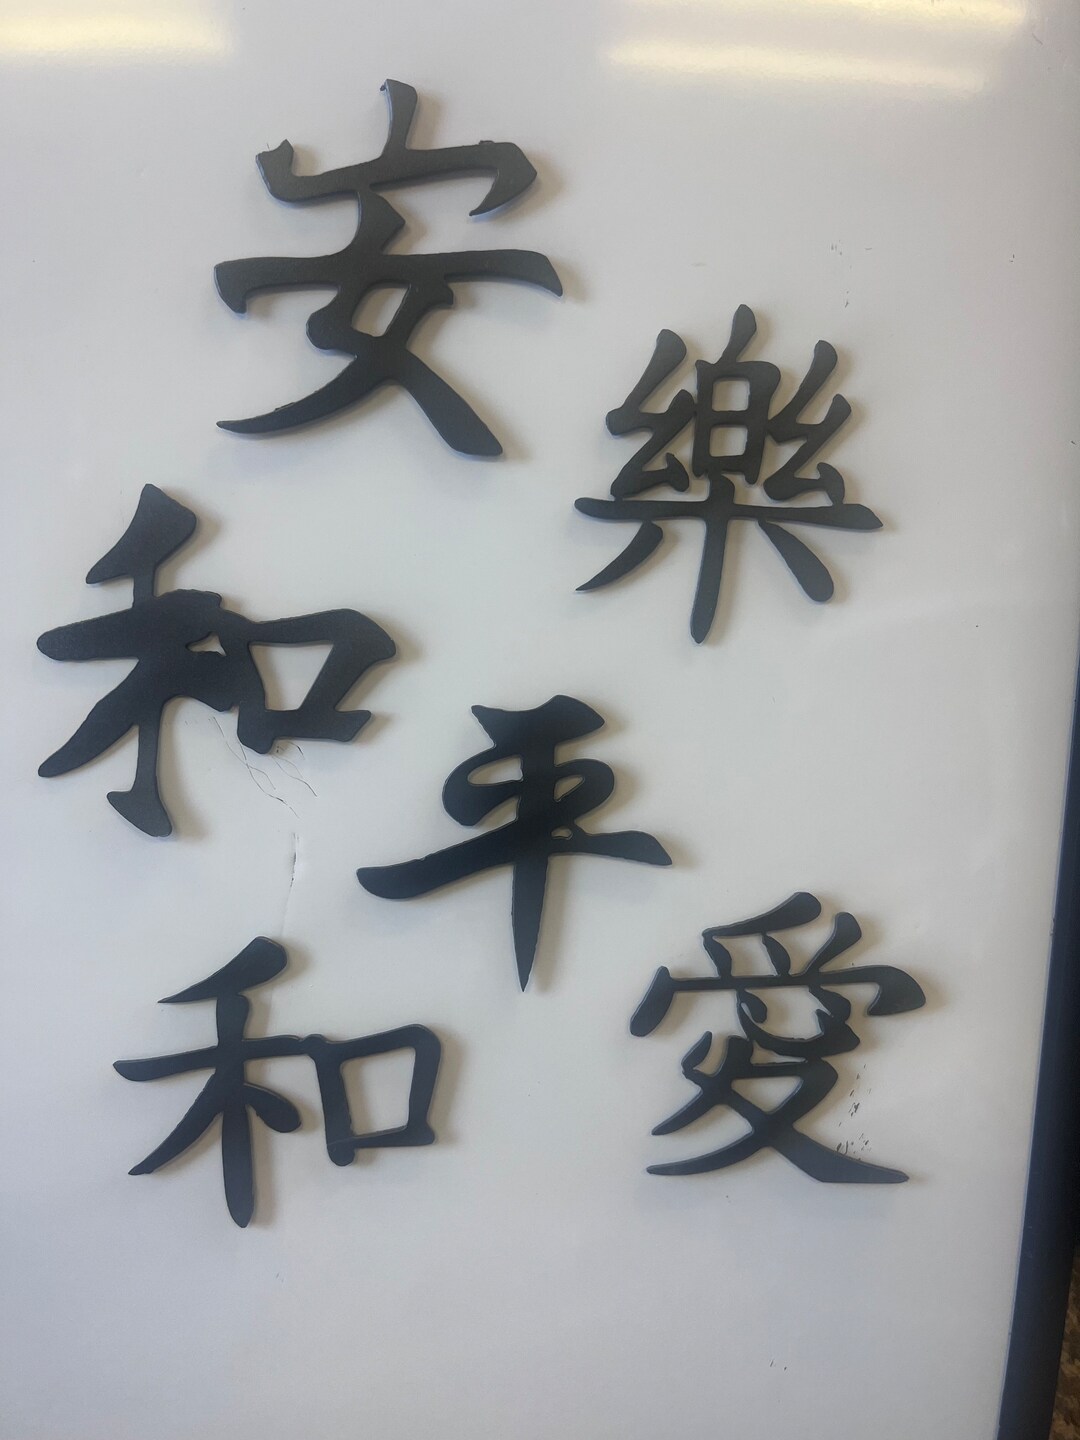 安
樂
和
平
和
愛